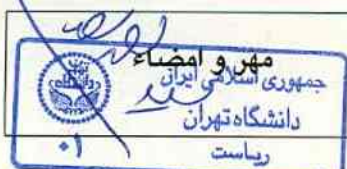 مهر و امضاء
جمهوری اسلامی ایران
دانشگاه تهران
ریاست
۰۱